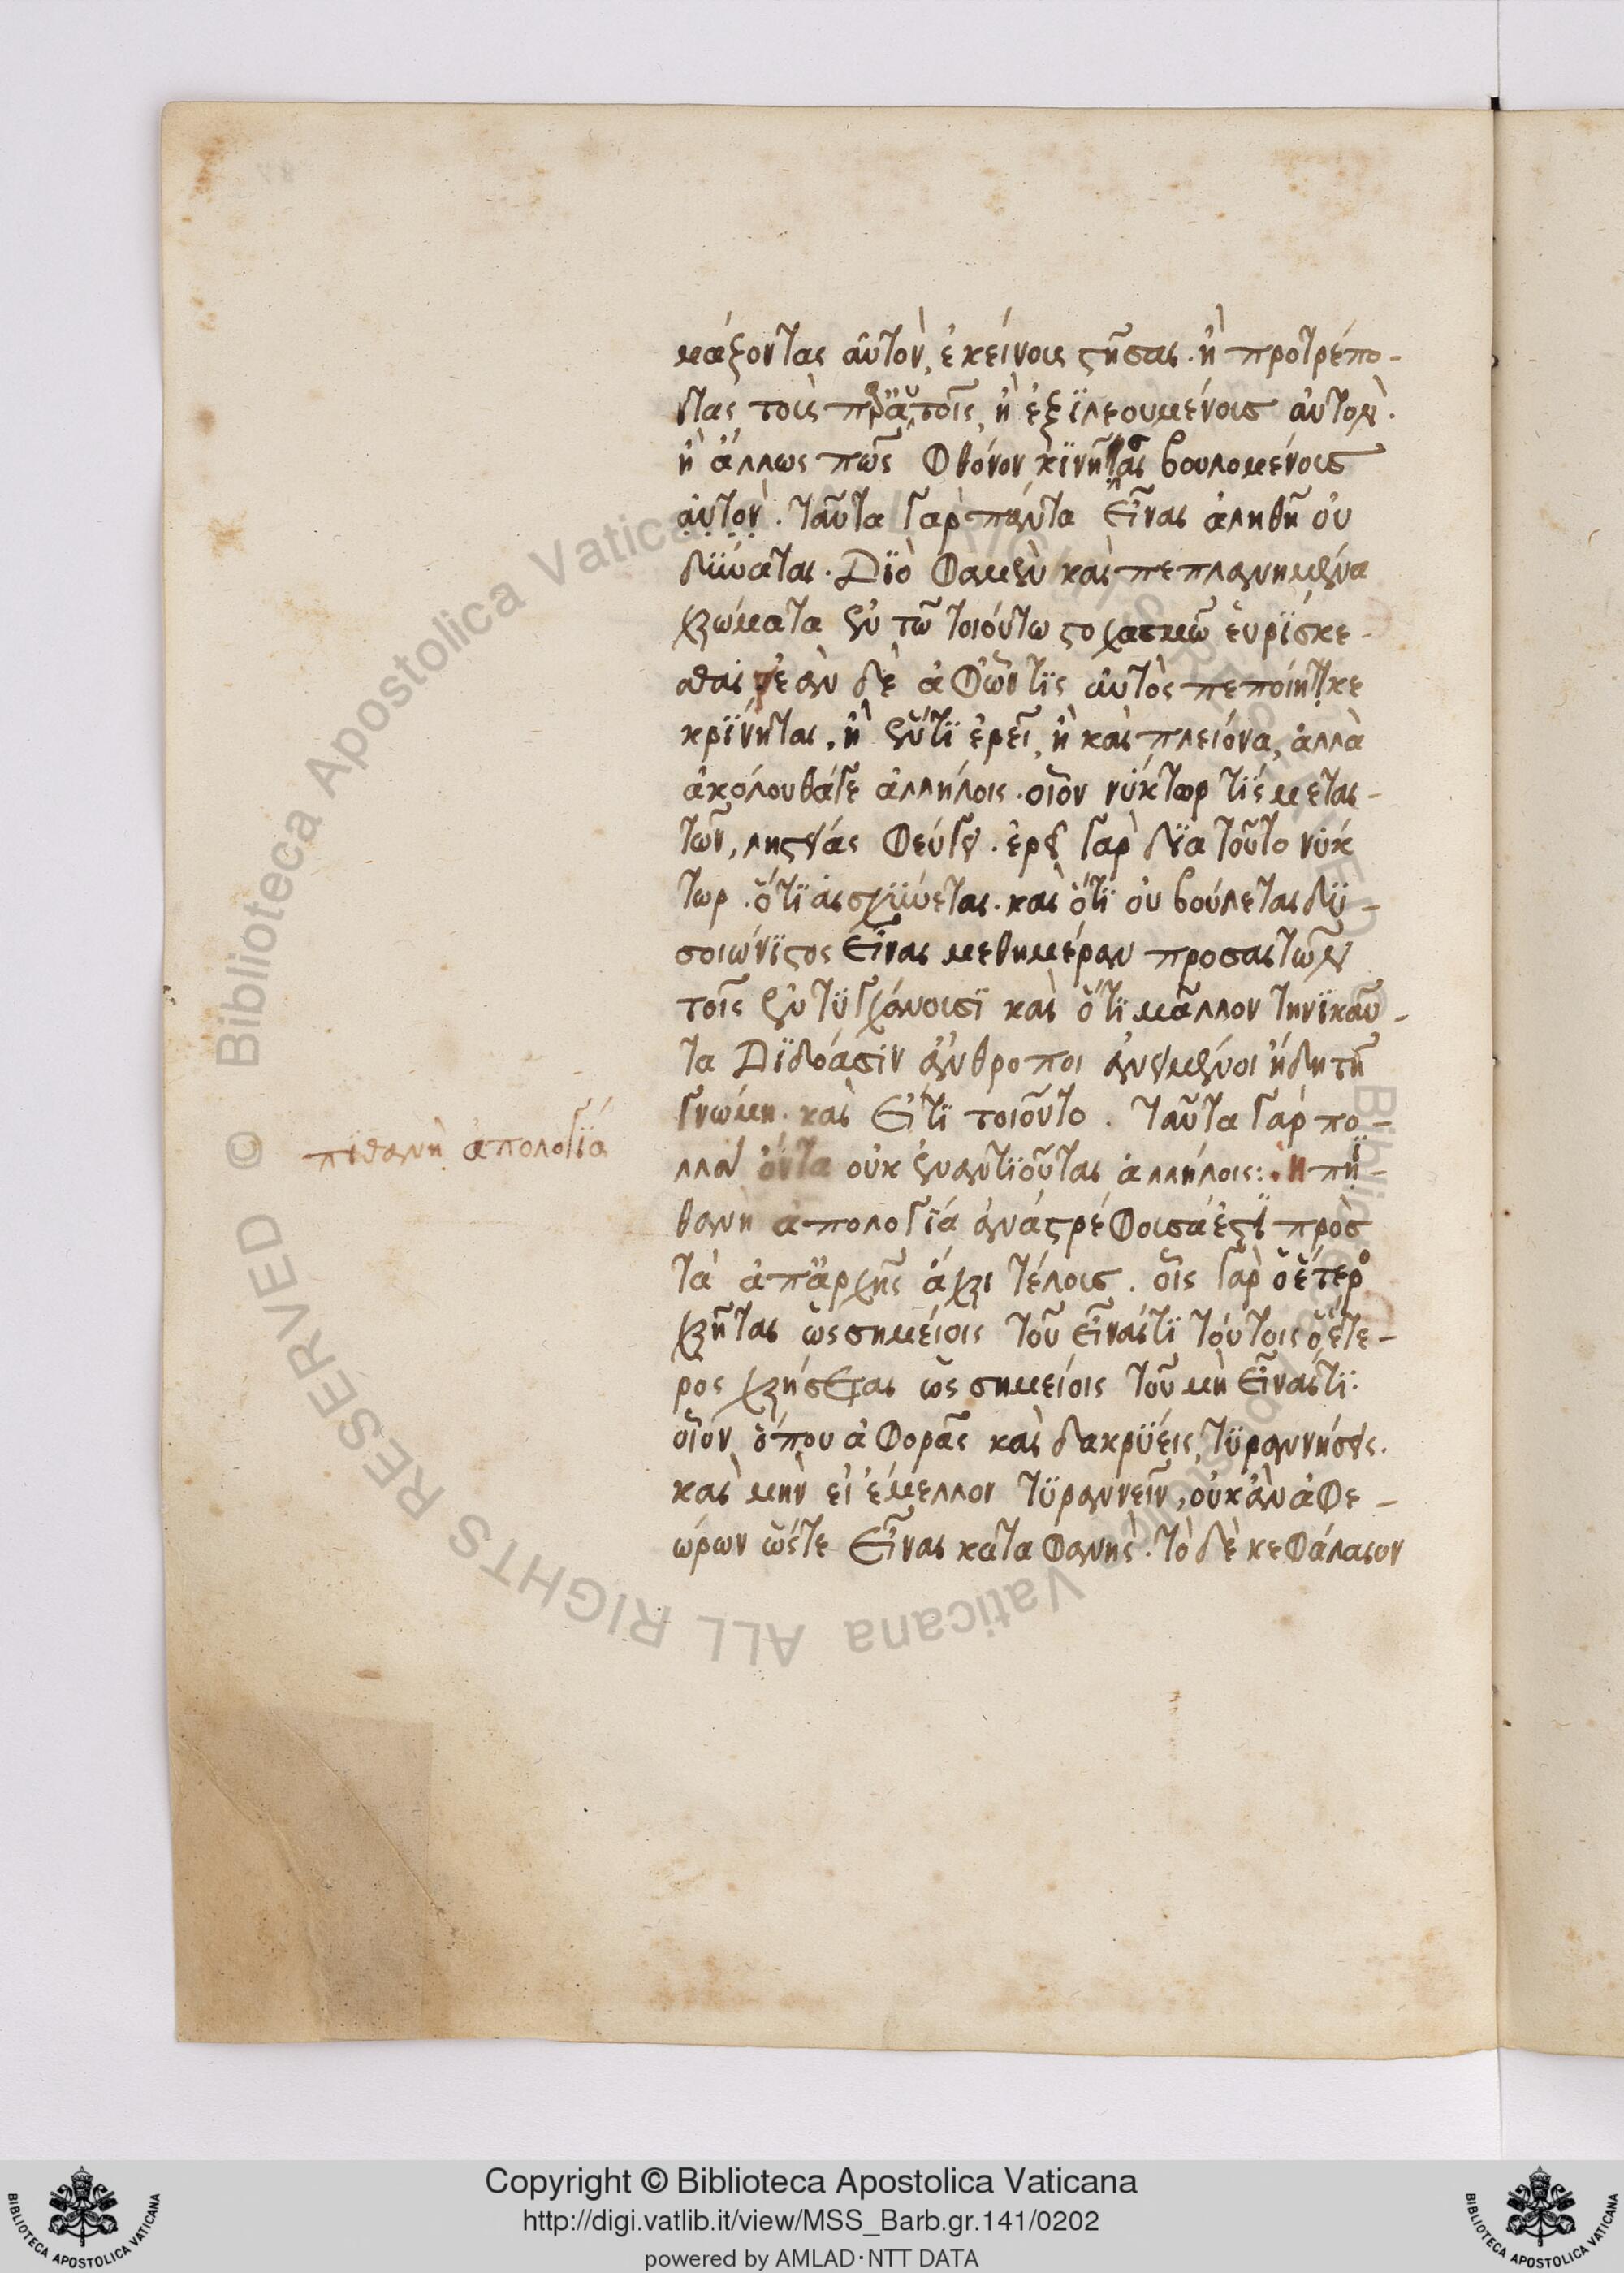 μάξοντας αὐτὸν, ἐκείνους ζητῆσαι. ἢ προτρέπο-
ἢ ἐξϊλεουμένους αὐτον.
ἢ ἄλλως πῶς φθόνον κϊνῆσαι βουλομένους
αὐτὸν. ταῦτα γὰρ πάντα εἶναι ἀληθῆ οὐ
δϋναται. Δϊὸ φαμὲν καὶ πεπλανημένα
χρώματα ἐν τῶ τοιούτω στοχασμῶ εὑρϊσκε-
σθαι ἐὰν δὲ ἀφῶν τϊς αὐτὸς πεποίηκε
κρϊνηται, ἢ ἕν τϊ ἐρεῖ, ἢ καὶ πλειόνα, ἀλλὰ
ἀκόλουθάγε ἀλλήλοις. οἷον νύκτωρ τϊς μεται-
τῶν, φεύγει. ἐρεῖ γὰρ δϊα τοῦτο νύκ
τωρ. ὅτϊ αἰσχϋνεται. καὶ ὅτϊ οὐ βούλεται δϋ-
σοιώνϊστος εἶναι μεθημέραν προσαιτῶν
τοῖς ἐντϋγχάνουσϊ καὶ ὅτϊ μᾶλλον τηνϊκαῦ-
τα Δϊδόασϊν ἄνθροποι ἀνειμένοι ἤδη τῆ
γνώμη. καὶ εἴ τϊ τοιοῦτο. ταῦτα γὰρ πο-
λλὰ ὄντα οὐκ ἐναντϊοῦται ἀλλήλοις: ἡ πϊ-
πϊθανὴ ἀπολογϊα
θανὴ ἀπολογϊά ἀναστρέφουσα ἐστϊ πρὸς
τὰ ἀπἄρχῆς ἄχρι τέλους. οἷς γὰρ ὁ ἕτερος
χρῆται ὡς σημείοις τοῦ εἶναί τϊ τούτοις ὁ ἕτε-
ρος χρήσεται ὡς σημείοις τοῦ μὴ εἶναί τϊ:
οἷον ὅπου ἀφορᾶς καὶ δακρϋεις, τϋραννήσεις.
καὶ μὴν εἰ ἔμελλον τϋραννεῖν, οὐκ ἂν ἀφε-
ώρων ὥστε εἶναι κατα φανὴς. τὸ δὲ κεφάλαιον
Copyright © Biblioteca Apostolica Vaticana
http://digi.vatlib.it/view/MSS_Barb.gr.141/0202
powered by AMLAD·NTT DATA
BIBLIOTECA APOSTOLICA VATICANA
BIBLIOTECA APOSTOLICA VATICANA
© Biblioteca Apostolica Vaticana ALL RIGHTS RESERVED